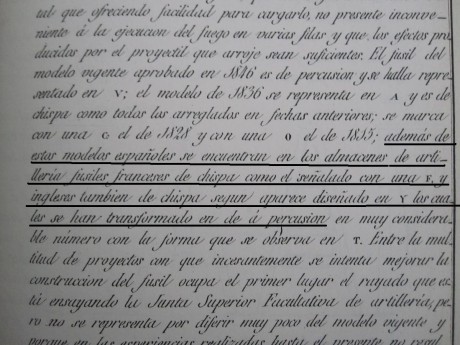 tal que ofreciendo facilidad para cargarlo, no presente inconve-
niente á la ejecucion del fuego en varias filas y que los efectos pro
ducidos por el proyectil que arroje sean suficientes. El fusil del
modelo vigente aprobado en 1846 es de percusion y se halla repre-
sentado en V; el modelo de 1836 se representa en A y es de
chispa como todas las arreglados en fechas anteriores; se marca
con una G el de 1828 y con una O el de 1835; además de
estas modelos españoles se encuentran en los almacenes de arti-
lleria fusiles franceses de chispa como el señalado con una F, y
ingleses tambien de chispa segun aparece diseñado en Y los cua
les se han transformado en de á percusion en muy considera-
ble número con la forma que se observa en T. Entre la mul-
titud de proyectos con que incesantemente se intenta mejorar la
construccion del fusil ocupa el primer lugar el rayado que es-
tá ensayando la Junta Superior Facultativa de artilleria, pe-
ro no se representa por diferir muy poco del modelo vigente y
porque en las esperiencias realizadas hasta el presente no